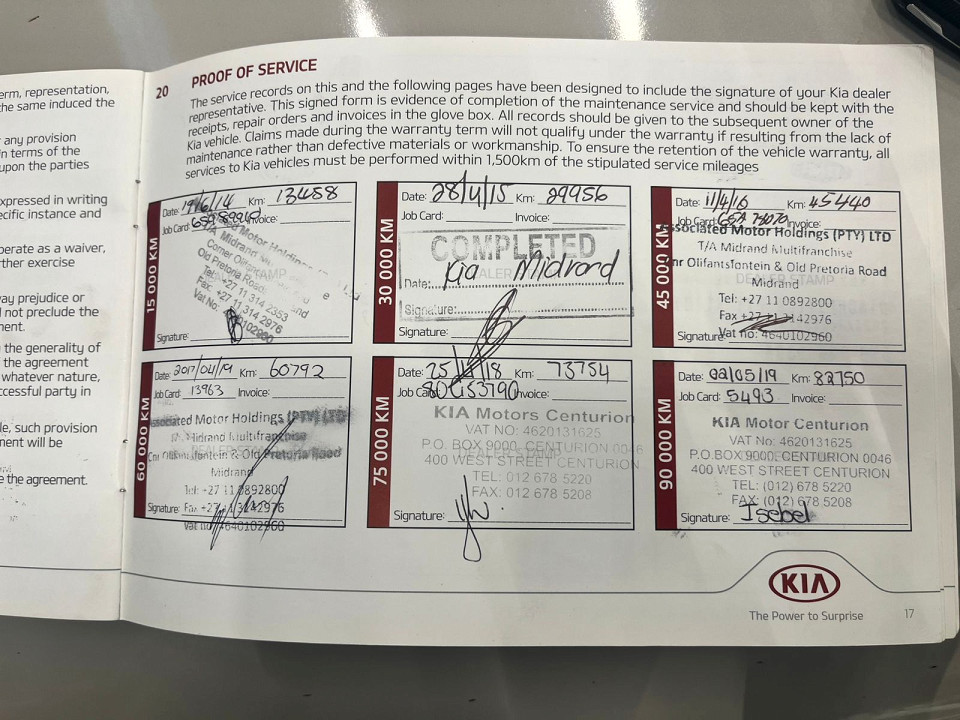 erm, representation,
he same induced the
any provision
n terms of the
upon the parties
xpressed in writing
ecific instance and
perate as a waiver,
way prejudice or
l not preclude the
ment.
the generality of
the agreement
whatever nature,
ccessful party in
le, such provision
ment will be
e the agreement.
20 PROOF OF SERVICE
The service records on this and the following pages have been designed to include the signature of your Kia dealer
representative. This signed form is evidence of completion of the maintenance service and should be kept with the
receipts, repair orders and invoices in the glove box. All records should be given to the subsequent owner of the
Kia vehicle. Claims made during the warranty term will not qualify under the warranty if resulting from the lack of
maintenance rather than defective materials or workmanship. To ensure the retention of the vehicle warranty, all
services to Kia vehicles must be performed within 1,500km of the stipulated service mileages
15 000 KM
Date: 19/6/14 Km: 13458
Job Card: Invoice:
Motor Holdings
T/A Midrand
Corner
Old Pretoria Road
Midrand
Tel: +27 11 314 2353
Fax: +27 11 314 2976
Vat No:
Signature:
30 000 KM
Date: 28/4/15 Km: 29956
Job Card: Invoice:
COMPLETED
Date: Kia Midrand
Signature:
Signature:
45 000 KM
Date: 11/4/16 Km: 45440
Job Card: Invoice:
ssociated Motor Holdings (PTY) LTD
T/A Midrand Multifranchise
nr Olifantsfontein & Old Pretoria Road
DEALER STAMP
Midrand
Tel: +27 11 0892800
Fax +27 11 3142976
Vat no: 4640102960
Signature:
60 000 KM
Date: 2017/04/19 Km: 60792
Job Card: 13963 Invoice:
ssociated Motor Holdings (PTY) LTD
Midrand Multifranchise
Cnr Olifantsfontein & Old Pretoria Road
Midrand
Tel: +27 11 0892800
Fax +27 11 3142976
Vat no: 4640102960
Signature:
75 000 KM
Date: 25 18 Km: 73754
Job Card: Invoice:
KIA Motors Centurion
VAT NO: 4620131625
P.O. BOX 9000, CENTURION 0046
400 WEST STREET CENTURION
TEL: 012 678 5220
FAX: 012 678 5208
Signature:
90 000 KM
Date: 02/05/19 Km: 82750
Job Card: 5493 Invoice:
KIA Motor Centurion
VAT NO: 4620131625
P.O.BOX 9000, CENTURION 0046
400 WEST STREET CENTURION
TEL: (012) 678 5220
FAX: (012) 678 5208
Signature: Isebel
KIA
The Power to Surprise
17